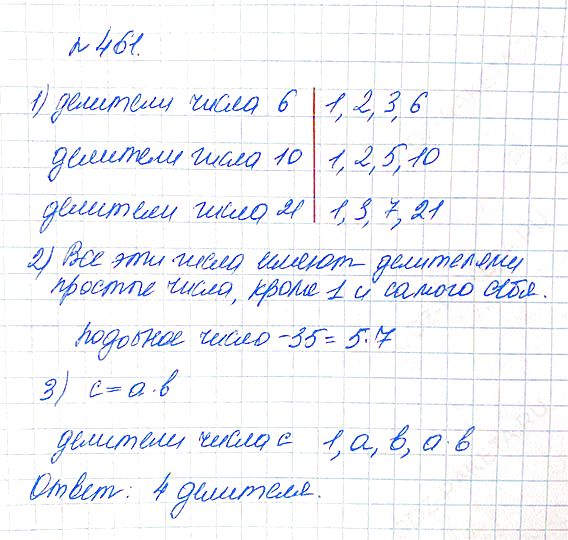 № 461.
1) делители числа 6 | 1, 2, 3, 6
делители числа 10 | 1, 2, 5, 10
делители числа 21 | 1, 3, 7, 21
2) Все эти числа имеют делителями
простые числа, кроме 1 и самого себя.
Подобное число – 35 = 5·7
3) c = a·b
делители числа c 1, a, b, a·b
Ответ: 4 делителя.